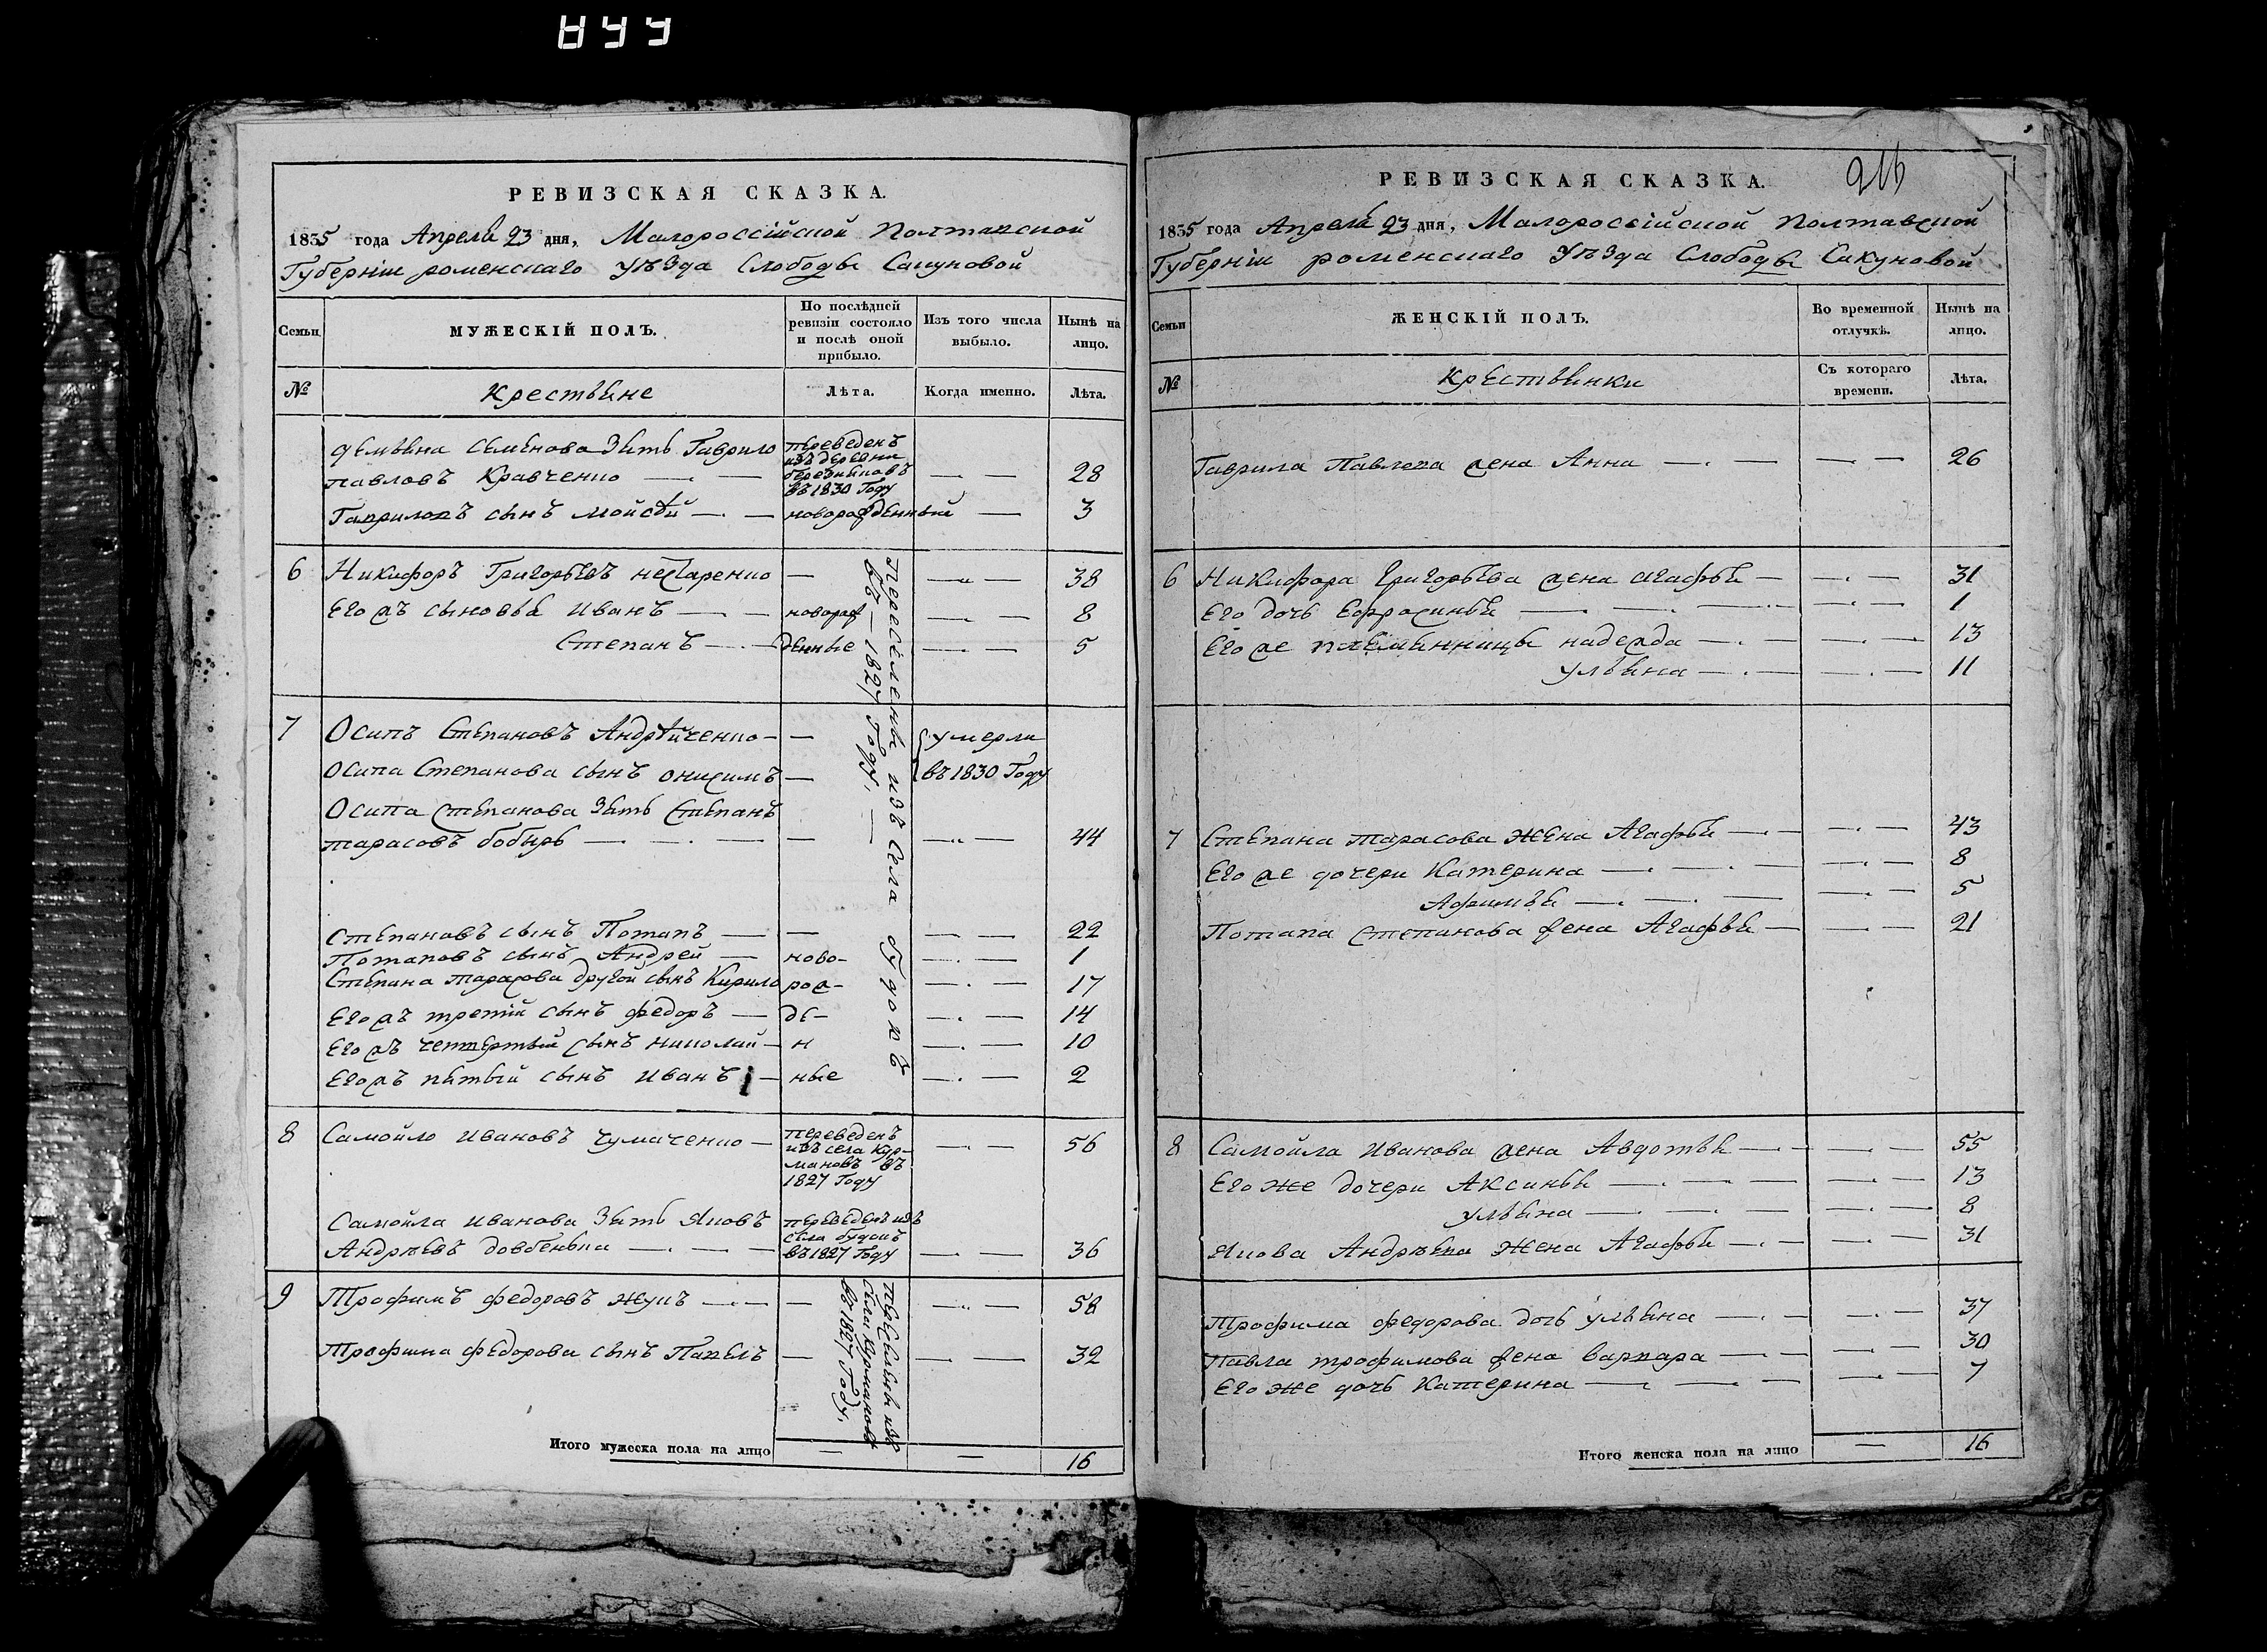 899
РЕВИЗСКАЯ СКАЗКА.
1835 года Апреля 23 дня, Малороссійской Полтавской
Губерніи роменскаго уѣзда Слободы Сакуновой
Семьи МУЖЕСКІЙ ПОЛЪ. По послѣдней ревизіи состояло и послѣ оной прибыло. Изъ того числа выбыло. Нынѣ на лицо.
№ Крестьяне Лѣта. Когда именно. Лѣта.
Демьяна Семенова Зять Гаврило переведенъ изъ деревни
павловъ Кравченко — въ 1830 Году — 28
Гавриловъ сынъ Мойсѣй — новорожденный — 3
6 Никифоръ Григорьевъ нестаренко — — 38
Его жъ сыновья Иванъ — новорож — 8
Степанъ — денные — 5
Переселены изъ Села Будокъ
въ — 1827 Году, —
7 Осипъ Степановъ Андрѣиченко — — умерли
Осипа Степанова сынъ Онисимъ — въ 1830 Году
Осипа Степанова Зять Степанъ
тарасовъ бобырь — — — 44
Степановъ сынъ Потапъ — — — 22
Потаповъ сынъ Андрей — ново- — 1
Степана тарасова другой сынъ Кирило рож- — 17
Его жъ третій сынъ Федоръ — де- — 14
Его жъ четвертый сынъ николай — н — 10
Его жъ пятый сынъ Иванъ — ные — 2
8 Самойло Ивановъ чумаченко — переведенъ — 56
изъ села Кур-
мановъ въ
1827 Году
Самойла Иванова Зять Яковъ переведенъ изъ
села будокъ
Андрѣевъ довбенька — въ 1827 Году — 36
9 Трофимъ Федоровъ жукъ — — — 58
Трофима Федорова сынъ Павелъ — — 32
переселены изъ
села Курмановъ
въ 1827 Году,
Итого мужеска пола на лицо — — 16
216
РЕВИЗСКАЯ СКАЗКА.
1835 года Апреля 23 дня, Малороссійской Полтавской
Губерніи роменскаго уѣзда Слободы Сакуновой
Семьи ЖЕНСКІЙ ПОЛЪ. Во временной отлучкѣ. Нынѣ на лицо.
№ Крестьянки Съ котораго времени. Лѣта.
Гаврила Павлова жена Анна — — 26
6 Никифора Григорьева жена Агафья — — 31
Его дочь Ефросинья — — 1
Его же племянницы надежда — — 13
ульяна — — 11
7 Степана тарасова жена Агафья — — 43
Его же дочери Катерина — — 8
Афимья — — 5
Потапа степанова жена Агафья — — 21
8 Самойла Иванова жена Авдотья — — 55
Его же дочери Аксинья — — 13
ульяна — — 8
Якова Андрѣева жена Агафья — — 31
Трофима Федорова дочь ульяна — — 37
Павла трофимова жена варвара — — 30
Его же дочь Катерина — — 7
Итого женска пола на лицо — 16